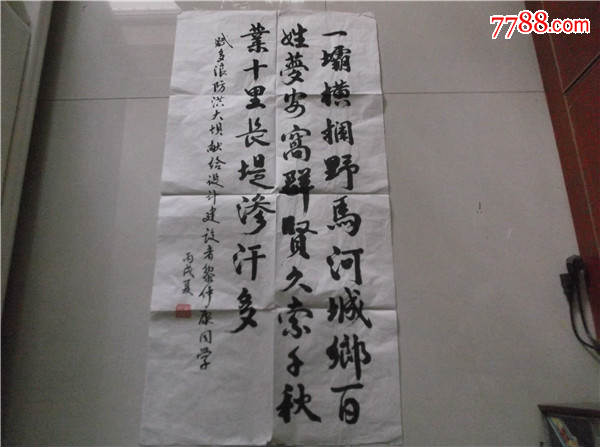 一壩橫攔野馬河城鄉百
姓夢安窩群賢久索千秋
業十里長堤滲汗多
賦多浪防洪大壩献给设计建设者黎仲康同学
丙戌夏
7788.com